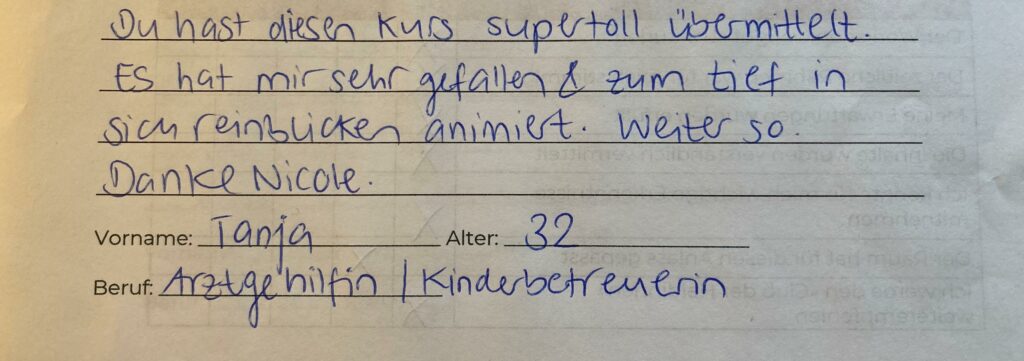 Du hast diesen Kurs supertoll übermittelt.
Es hat mir sehr gefallen & zum tief in
sich reinblicken animiert. Weiter so.
Danke Nicole.
Vorname: Tanja Alter: 32
Beruf: Arztgehilfin / Kinderbetreuerin